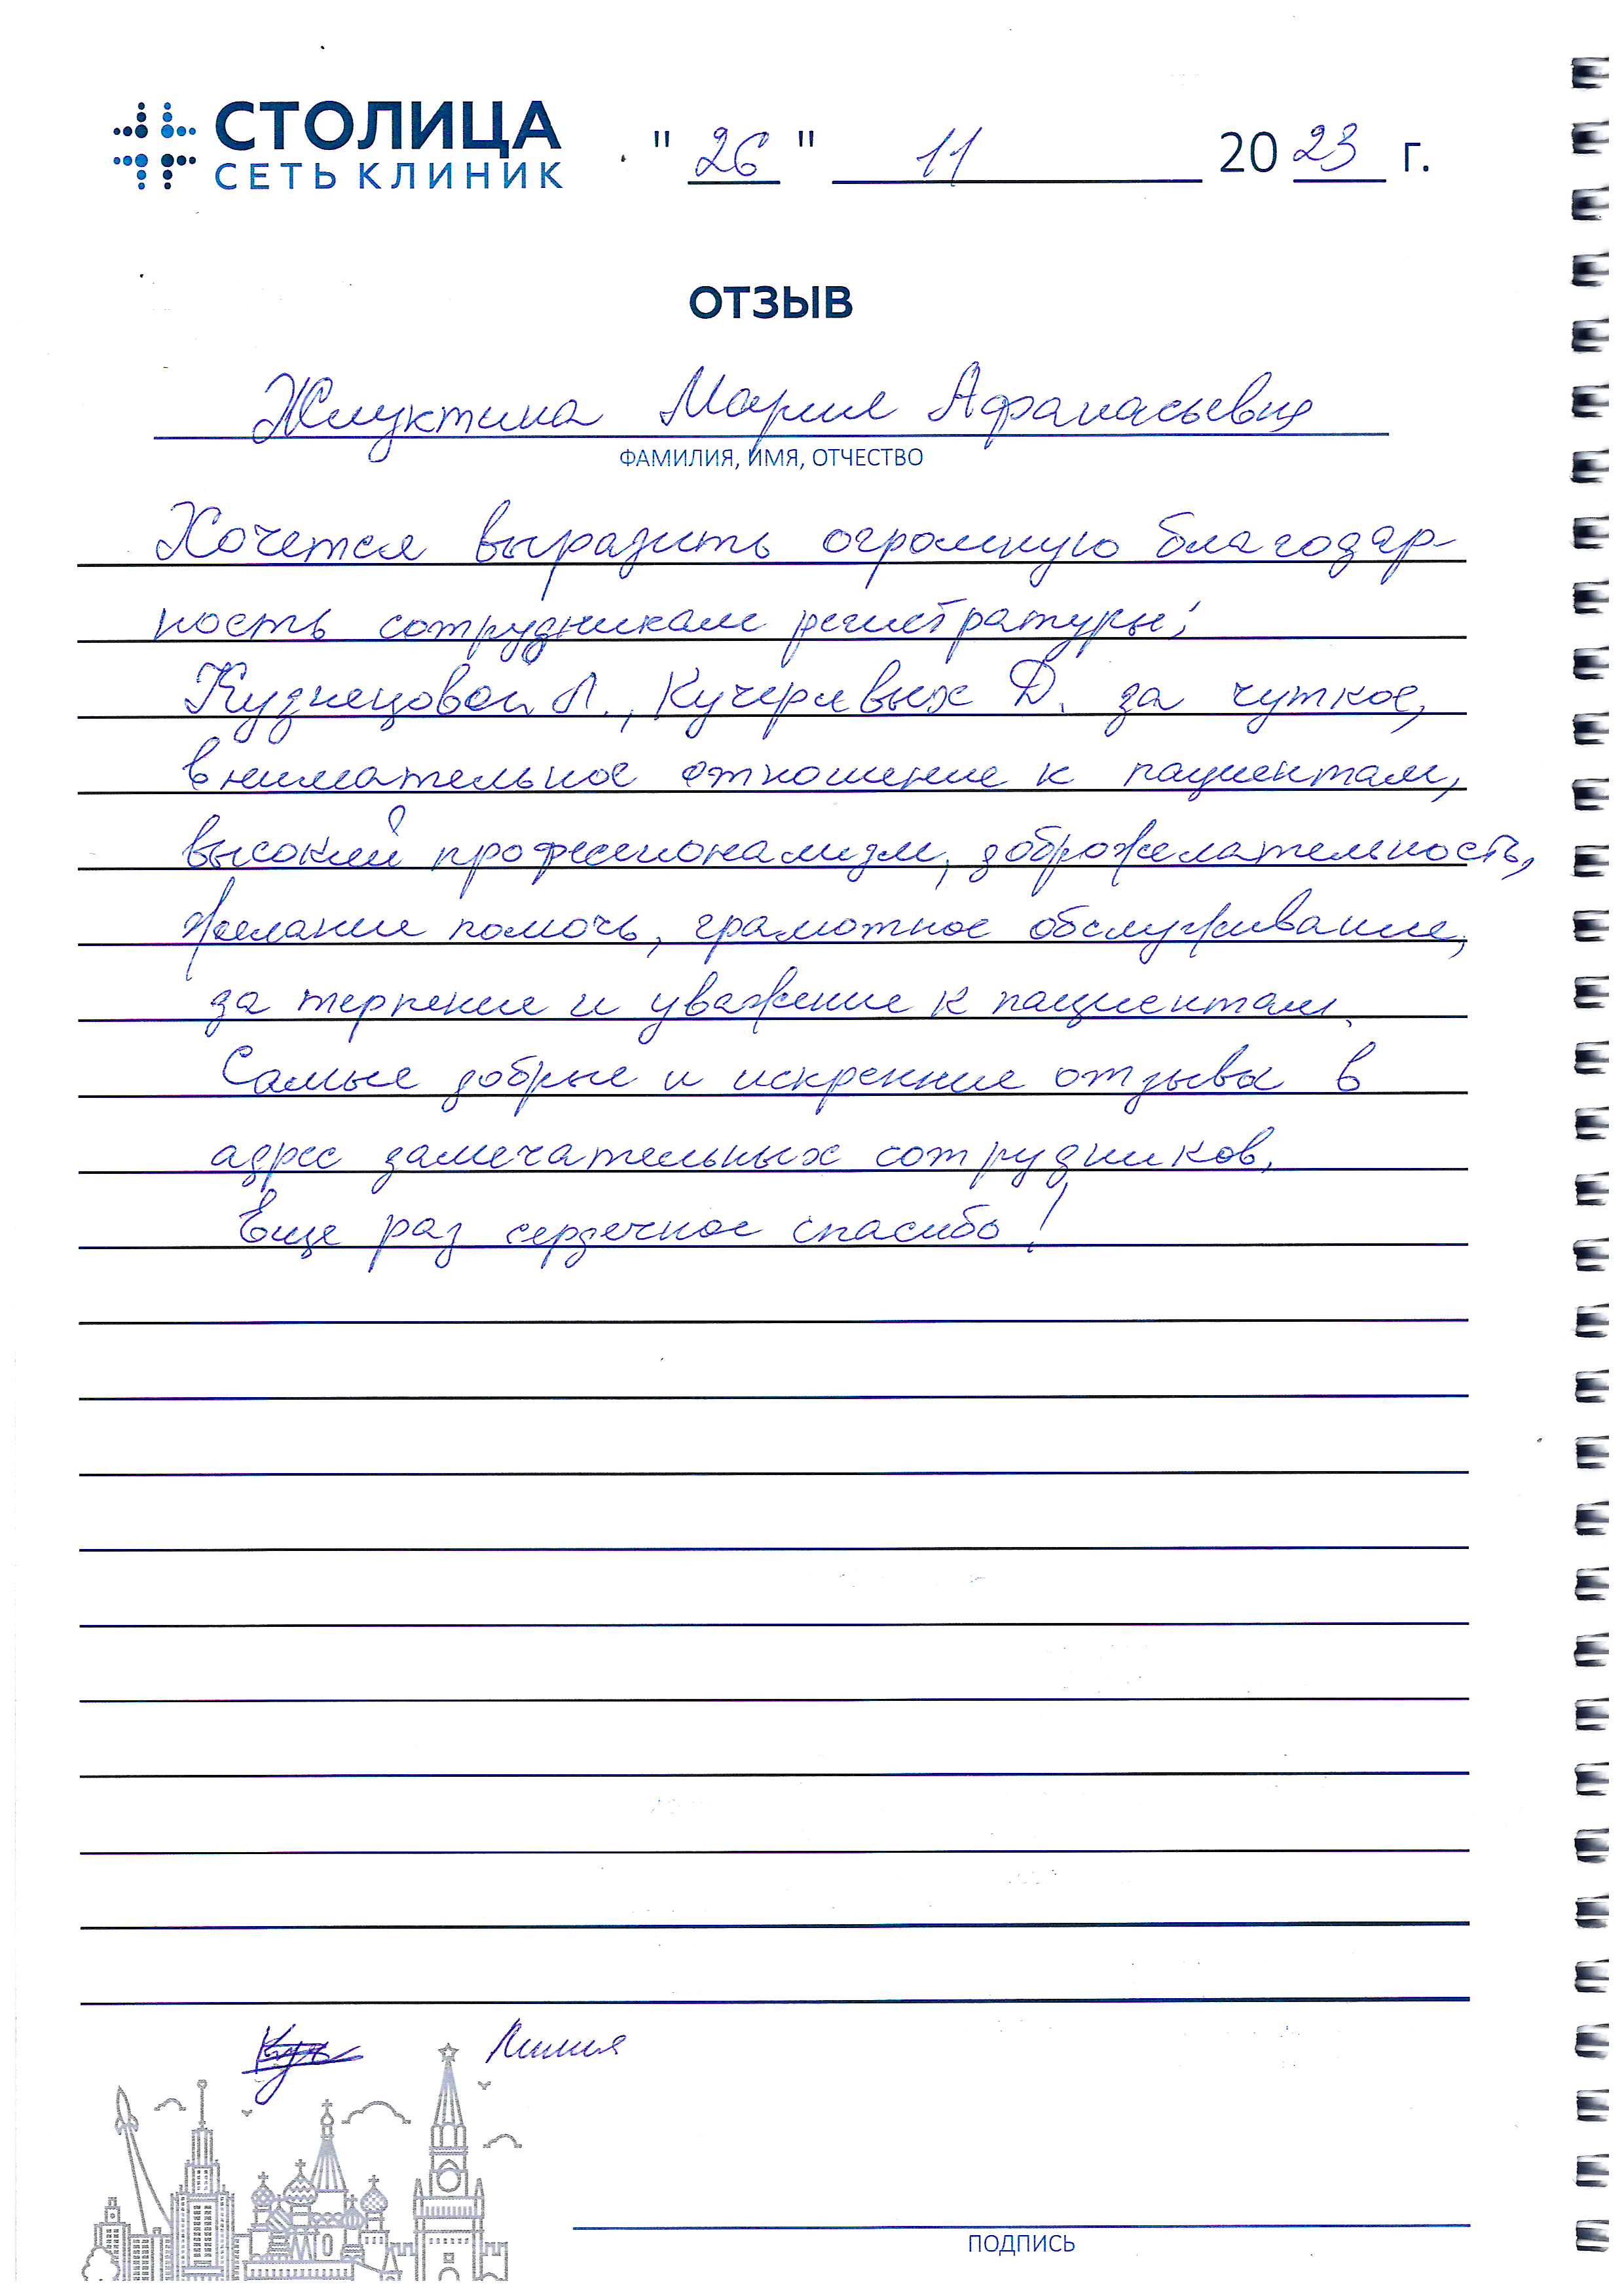 СТОЛИЦА
СЕТЬ КЛИНИК
" 26 " 11 20 23 г.
ОТЗЫВ
Жмуктина Мария Афанасьевна
ФАМИЛИЯ, ИМЯ, ОТЧЕСТВО
Хочется выразить огромную благодар-
ность сотрудникам регистратуры:
Кузнецовой Л., Кучерявых Д. за чуткое,
внимательное отношение к пациентам,
высокий професионализм, доброжелательность,
желание помочь, грамотное обслуживание,
за терпение и уважение к пациентам.
Самые добрые и искренние отзывы в
адрес замечательных сотрудников.
Еще раз сердечное спасибо!
Лилия
ПОДПИСЬ